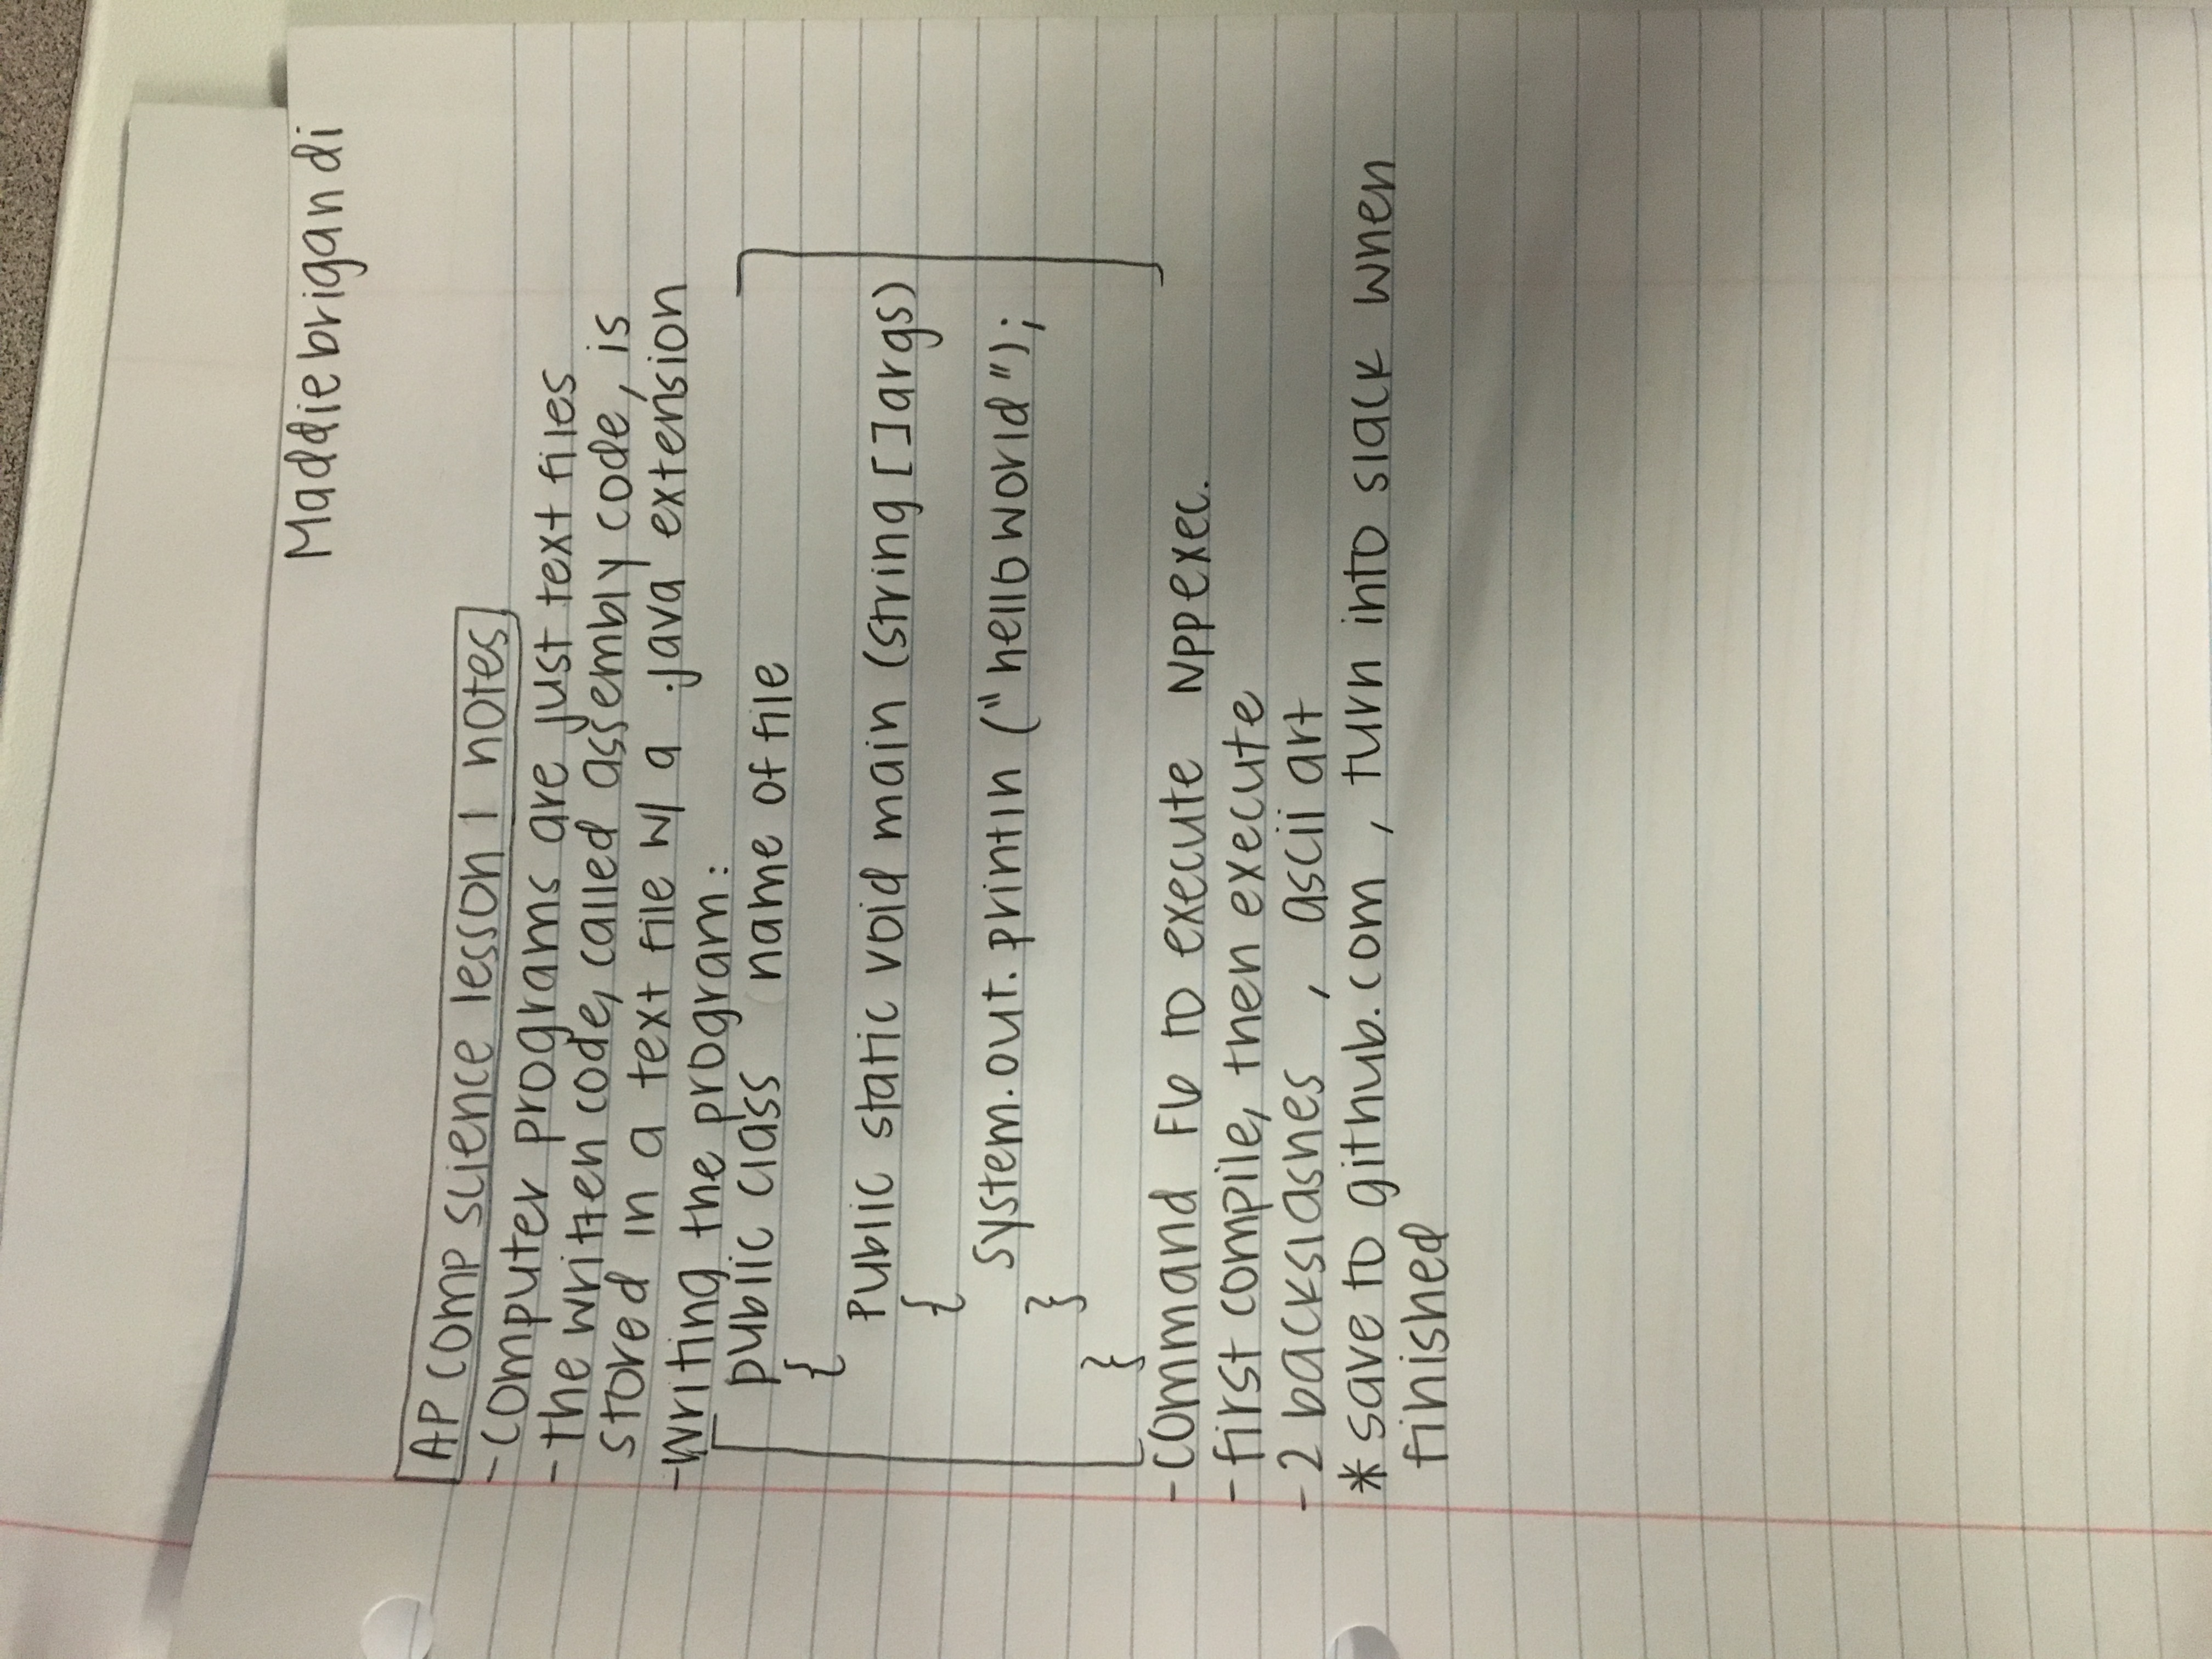 Maddie brigandi
AP comp science lesson 1 notes
-computer programs are just text files
-the written code, called assembly code, is
stored in a text file w/ a .java extension
-writing the program:
public class name of file
{
public static void main (string []args)
{
system.out.println ("hello world");
}
}
-command F6 to execute Nppexec.
-first compile, then execute
-2 backslashes , ascii art
*save to github.com , turn into slack when
finished